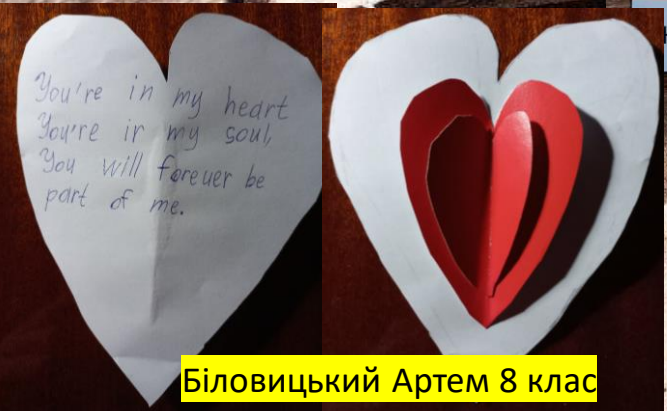 You're in my heart
You're in my soul,
You will forever be
part of me.
Біловицький Артем 8 клас